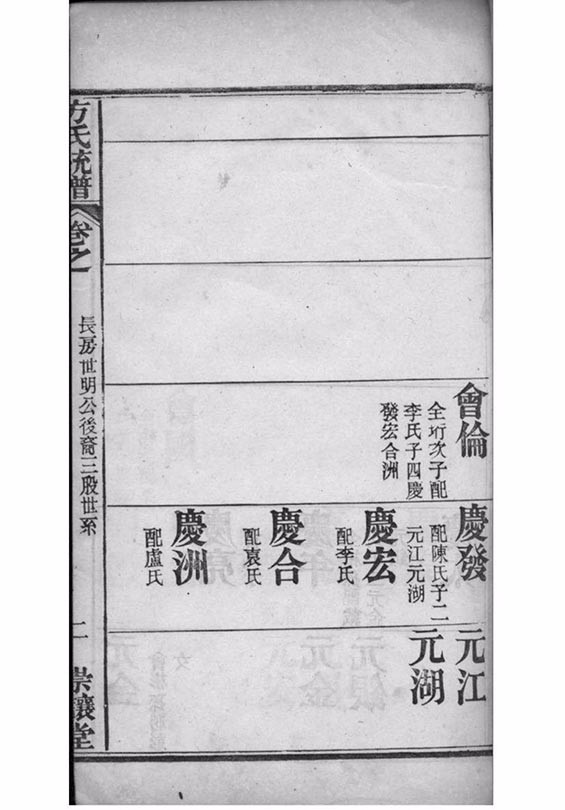 會倫
全垳次子配
李氏子四慶
發宏合洲
慶發
配陳氏子二
元江元湖
慶宏
配李氏
慶合
配袁氏
慶洲
配盧氏
元江
元湖
方氏統譜
卷之
長房世明公後裔三股世系
二
崇讓堂